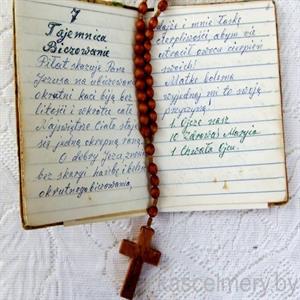 7
Tajemnica
Biczowanie
Piłat skazuje Pana
Jezusa na ubiczowanie
okrutni kaci biją bez
litości i wkrótce całe
Najświętsze Ciało staje
się jedną okropną raną
O dobry Jezu, znoszę
bez skargi hańbę i ból
okrutnego biczowania,
i mnie łaskę
cierpliwości, abym nie
utracił owoców cierpień
swoich!
Matko bolesna
wyjednaj mi to swoją
przyczyną!
1 Ojcze nasz
10 Zdrowaś Maryja
1 Chwała Ojcu.
kascelmery.by